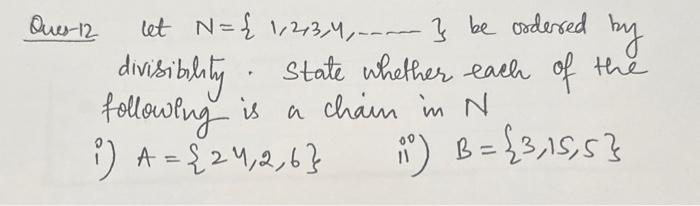 Ques-12 let N = { 1,2,3,4,------ } be ordered by
divisibility. State whether each of the
following is a chain in N
i) A = {24,2,6} ii) B = {3,15,5}